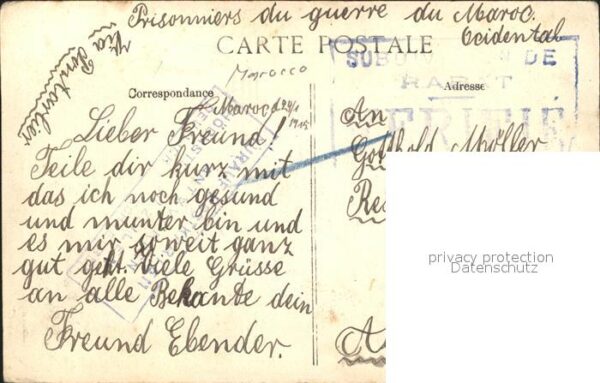 Prisonniers du guerre du Maroc.
Ocidental
Via Pontarlier
CARTE POSTALE
Marocco
SUBDIVISION DE
RABAT
VÉRIFIÉ
Correspondance
Adresse
Maroc d 24/1
1915
Lieber Freund!
Teile dir kurz mit
das ich noch gesund
und munter bin und
es mir soweit ganz
gut geht. Viele Grüsse
an alle Bekante dein
Freund Ebender.
An
Gotthold Müller
privacy protection
Datenschutz